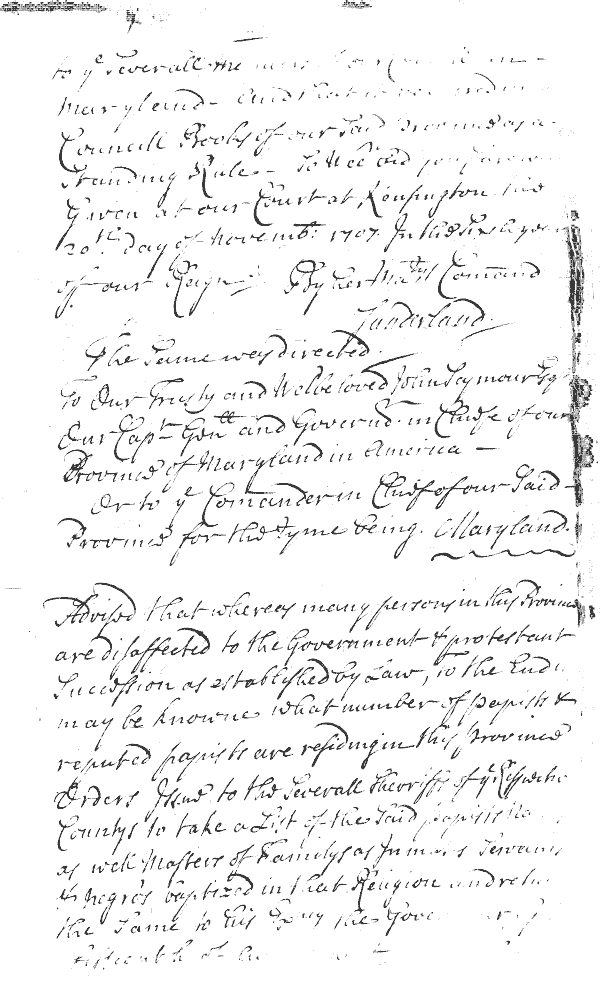 to ye Severall
Maryland - And that
Councill Books of our Said Province as a
Standing Rule - So Wee bid you farewell
Given at our Court at Kensington the
20th. day of Novemb: 1707. In the Sixth year
off our Reign By her Matys Comand
Sunderland.
The Same was directed.
To Our Trusty and Welbeloved John Seymour Esqr
Our Capt. Genll and Governr. in Chiefe of our
Province of Maryland in America -
Or to ye Comander in Chief of our Said -
Province for the Tyme being. Maryland.
Advised that whereas many persons in this Province
are disaffected to the Government & protestant
Succession as established by Law, To the End it
may be knowne what number of papists &
reputed papists are residing in this Province
Orders Issue to the Severall Sherriffs of ye Respective
Countys to take a List of the Said papists
as well Masters of Familys as Inmates Servants
& Negros baptized in that Religion and
the Same to his Exny the